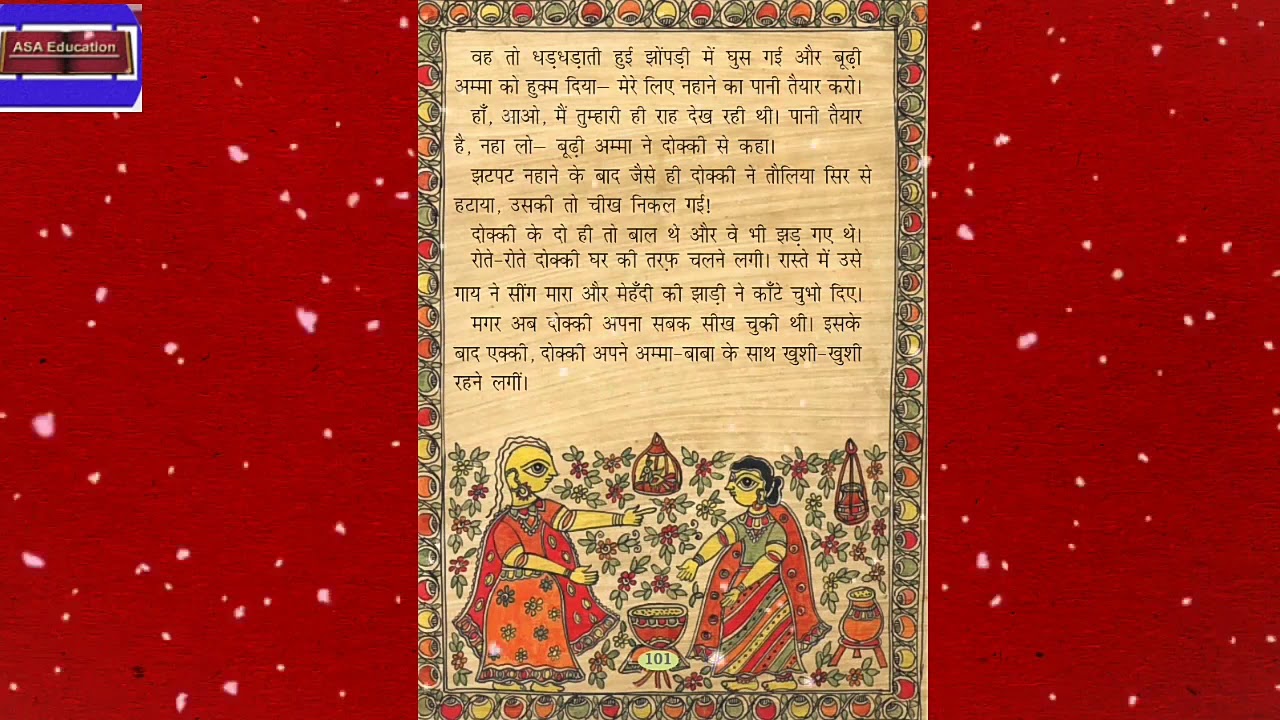 ASA Education
वह तो धड़धड़ाती हुई झोंपड़ी में घुस गई और बूढ़ी
अम्मा को हुक्म दिया– मेरे लिए नहाने का पानी तैयार करो।
हाँ, आओ, मैं तुम्हारी ही राह देख रही थी। पानी तैयार
है, नहा लो– बूढ़ी अम्मा ने दोक्की से कहा।
झटपट नहाने के बाद जैसे ही दोक्की ने तौलिया सिर से
हटाया, उसकी तो चीख निकल गई!
दोक्की के दो ही तो बाल थे और वे भी झड़ गए थे।
रोते-रोते दोक्की घर की तरफ़ चलने लगी। रास्ते में उसे
गाय ने सींग मारा और मेहँदी की झाड़ी ने काँटे चुभो दिए।
मगर अब दोक्की अपना सबक सीख चुकी थी। इसके
बाद एक्की, दोक्की अपने अम्मा-बाबा के साथ खुशी-खुशी
रहने लगीं।
101